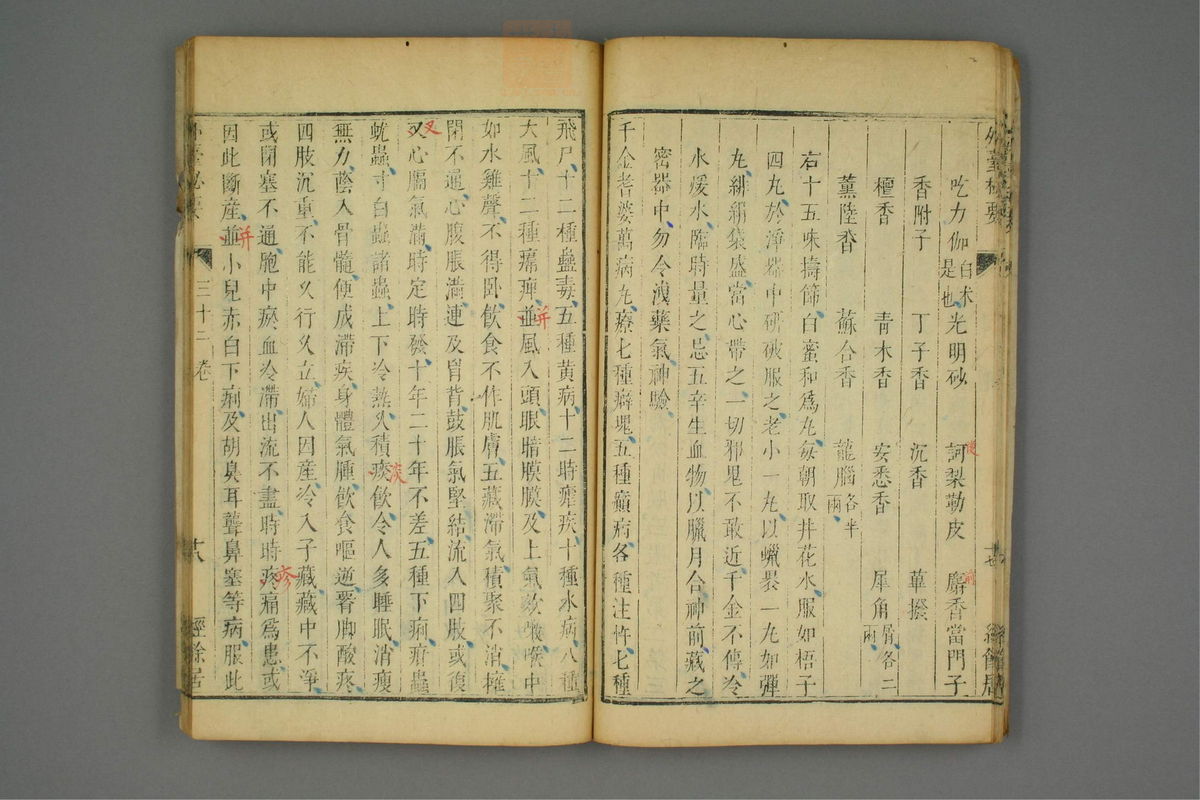 外臺秘要
吃力伽白朮是也 光明砂 訶梨勒皮 麝香當門子
香附子 丁子香 沉香 蓽撥
檀香 青木香 安悉香 犀角屑各二兩
薰陸香 蘇合香 龍腦各半兩
右十五味擣篩白蜜和為丸每朝取井花水服如梧子
四丸於淨器中研破服之老小一丸以蠟裹一丸如彈
丸緋絹袋盛當心帶之一切邪鬼不敢近千金不傳冷
水煖水臨時量之忌五辛生血物以臘月合神前藏之
密器中勿令洩藥氣神驗
千金耆婆萬病丸療七種癖塊五種癲病各種注忤七種
飛尸十二種蠱毒五種黃病十二時瘧疾十種水病八種
大風十二種㾏痺並風入頭眼暗膜膜及上氣欬嗽喉中
并
如水雞聲不得臥飲食不作肌膚五藏滯氣積聚不消擁
閉不通心腹脹滿連及胷背鼓脹氣堅結流入四肢或復
叉心膈氣滿時定時發十年二十年不差五種下痢疳蟲
叉
蚘蟲寸白蟲諸蟲上下冷熱久積痰飲令人多睡眠消瘦
無力蔭入骨髓便成滯疾身體氣腫飲食嘔逆腰脚酸疼
四肢沉重不能久行久立婦人因產冷入子藏藏中不淨
或閉塞不通胞中瘀血冷滯出流不盡時時疼痛為患或
疼
因此斷產並小兒赤白下痢及胡臭耳聾鼻塞等病服此
并
外臺秘要 三十三卷 六 經餘居